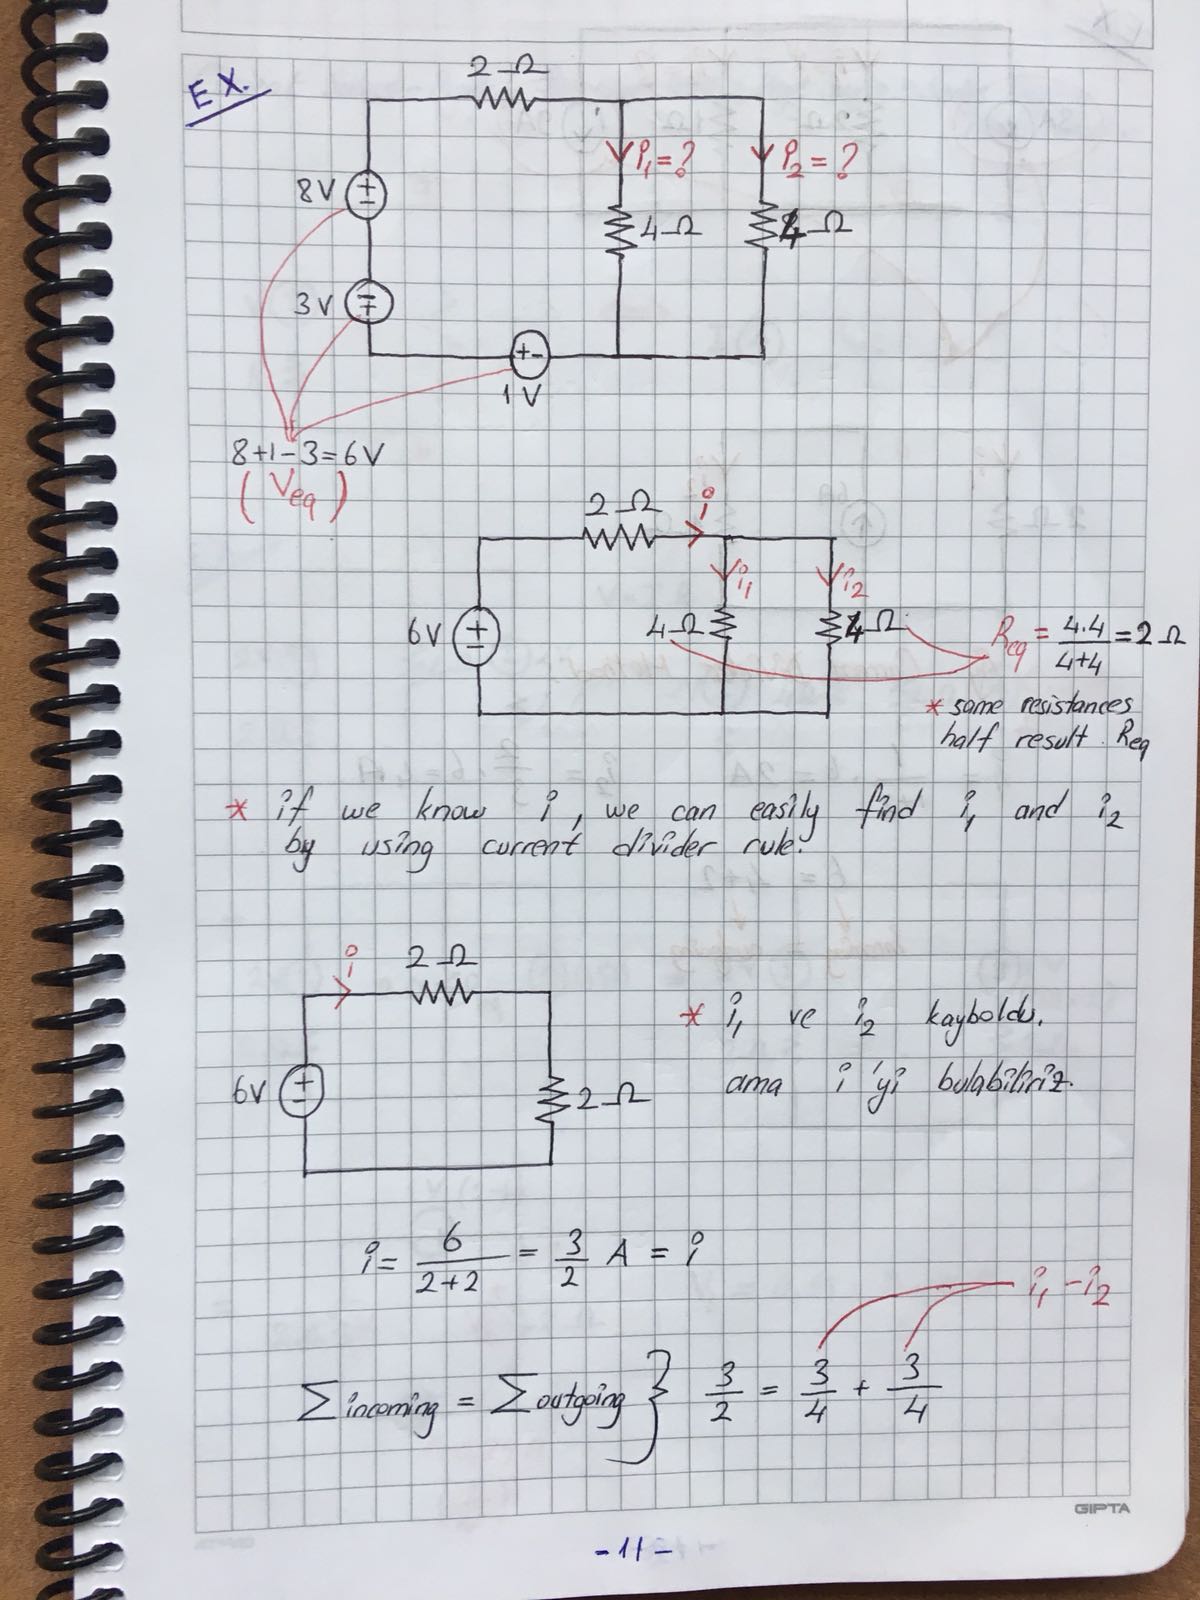 EX.
2 Ω
i₁ = ?
i₂ = ?
8V
4 Ω
4 Ω
3V
1V
8+1-3=6V
(Veq)
2 Ω
i
i₁
i₂
6V
4 Ω
4 Ω
Req = 4.4/4+4 = 2 Ω
* same resistances
half result. Req
* if we know i, we can easily find i₁ and i₂
by using current divider rule.
i
2 Ω
* i₁ ve i₂ kayboldu.
6V
2 Ω
ama i'yi bulabiliriz.
i = 6/2+2 = 3/2 A = i
i₁ - i₂
Σ incoming = Σ outgoing } 3/2 = 3/4 + 3/4
GIPTA
-11-